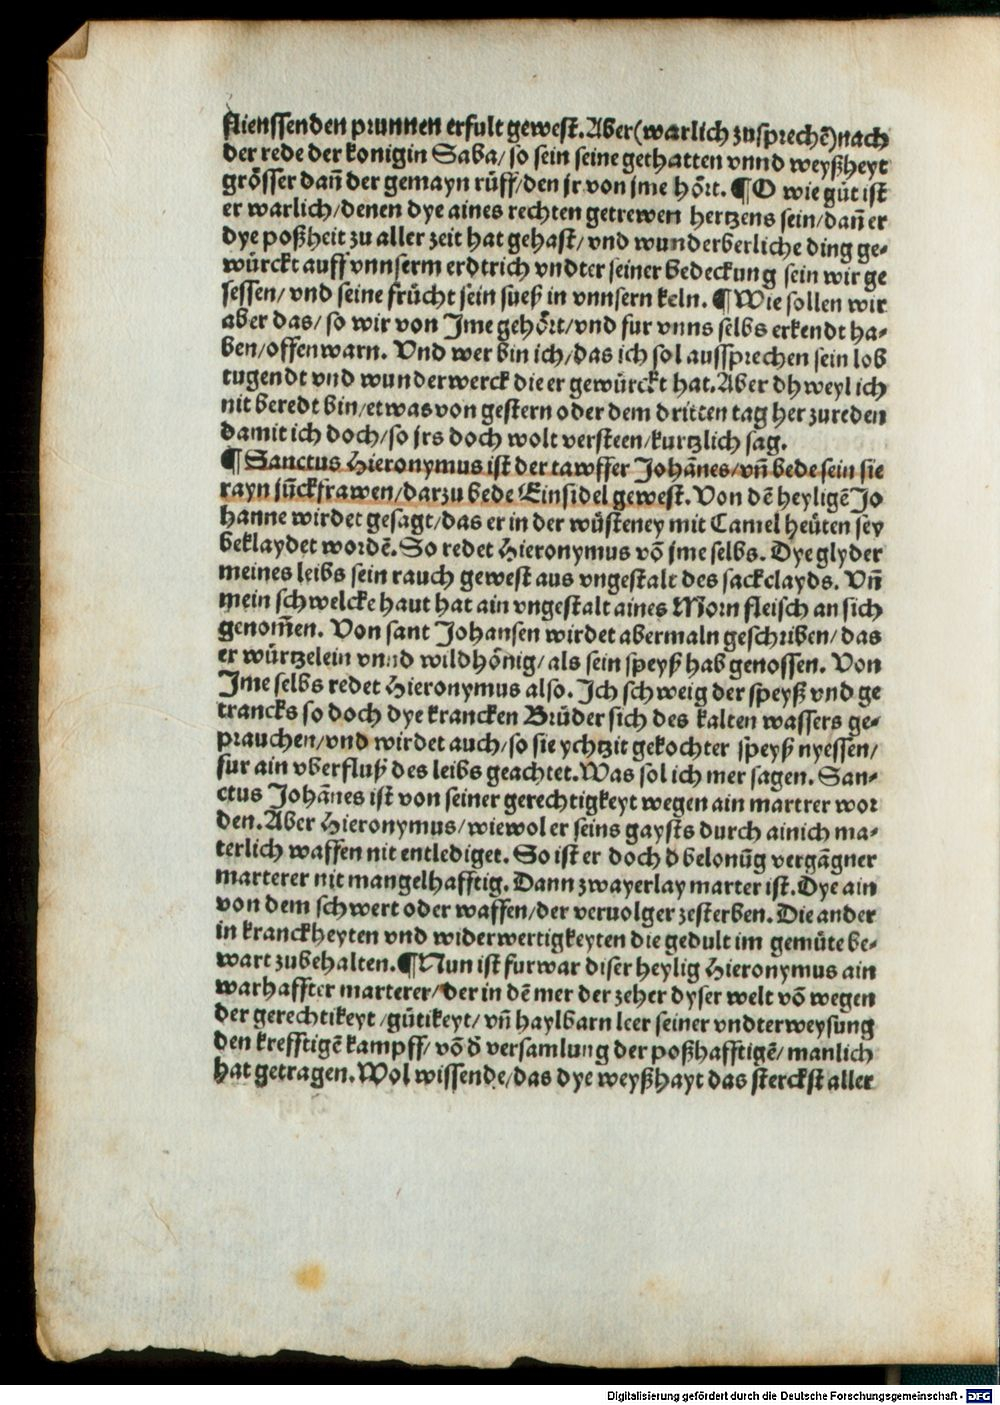 flienssenden prunnen erfult gewest. Aber (warlich zusprechē) nach
der rede der konigin Saba/ so sein seine gethatten vnnd weyßheyt
grösser dañ der gemayn rüff/ den jr von jme hört. ¶ O wie güt ist
er warlich/ denen dye aines rechten getrewen hertzens sein/ dañ er
dye poßheit zu aller zeit hat gehast/ vnd wunderberliche ding ge⸗
würckt auff vnnserm erdtrich vndter seiner bedeckung sein wir ge
sessen/ vnd seine frücht sein sueß in vnnsern keln. ¶ Wie sollen wir
aber das/ so wir von Jme gehört/ vnd fur vnns selbs erkendt ha⸗
ben/ offenwarn. Vnd wer bin ich/ das ich sol aussprechen sein lob
tugendt vnd wunderwerck die er gewürckt hat. Aber dhweyl ich
nit beredt bin/ etwas von gestern oder dem dritten tag her zureden
damit ich doch/ so jrs doch wolt versteen/ kurtzlich sag.
¶ Sanctus Hieronymus ist der tawffer Johānes/ vñ bede sein sie
rayn jūckfrawen/ darzu bede Einsidel gewest. Von dē heyligē Jo
hanne wirdet gesagt/ das er in der wüsteney mit Camel heüten sey
beklaydet wordē. So redet Hieronymus vō jme selbs. Dye glyder
meines leibs sein rauch gewest aus vngestalt des sackclayds. Vñ
mein schwelcke haut hat ain vngestalt aines Morn fleisch an sich
genom̄en. Von sant Johansen wirdet abermaln geschriben/ das
er würtzelein vnnd wildhönig/ als sein speyß hab genossen. Von
Jme selbs redet Hieronymus also. Ich schweig der speyß vnd ge
trancks so doch dye krancken Brüder sich des kalten wassers ge⸗
prauchen/ vnd wirdet auch/ so sie ychtzit gekochter speyß nyessen/
fur ain vberfluß des leibs geachtet. Was sol ich mer sagen. San⸗
ctus Johānes ist von seiner gerechtigkeyt wegen ain martrer wor
den. Aber Hieronymus/ wiewol er seins gaysts durch ainich ma⸗
terlich waffen nit entlediget. So ist er doch đ belonūg vergāgner
marterer nit mangelhafftig. Dann zwayerlay marter ist. Dye ain
von dem schwert oder waffen/ der veruolger zesterben. Die ander
in kranckheyten vnd widerwertigkeyten die gedult im gemüte be⸗
wart zubehalten. ¶ Nun ist furwar diser heylig Hieronymus ain
warhaffter marterer/ der in dē mer der zeher dyser welt vō wegen
der gerechtikeyt/ gütikeyt/ vñ haylbarn leer seiner vndterweysung
den krefftigē kampff/ vō đ versamlung der poßhafftigē/ manlich
hat getragen. Wol wissende/ das dye weyßhayt das sterckst aller
Digitalisierung gefördert durch die Deutsche Forschungsgemeinschaft - DFG